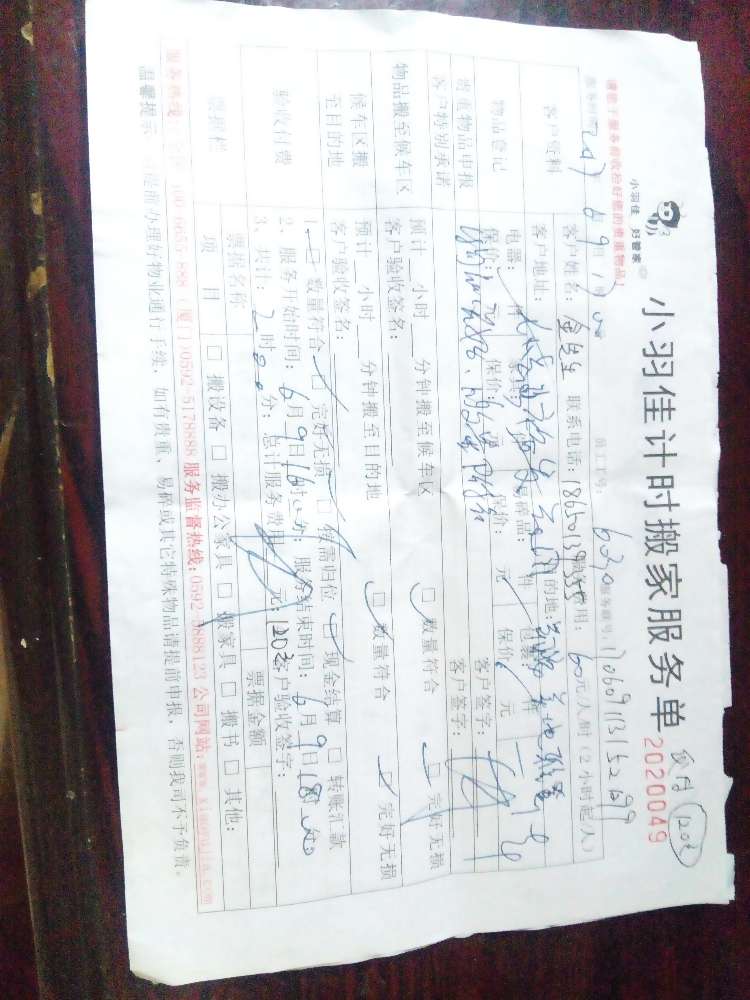 小羽佳 好管家
小羽佳计时搬家服务单
2020049
现付 120元
请您于服务前收拾好您的贵重物品!
服务时间: 2017 6 9日
员工工号: 6230 服务单号:
客户资料
客户姓名: 金先生 联系电话: 费用: 60元/人/时(2小时起/人)
客户地址: 目的地:
物品登记
电器: 件 家具: 件 易碎品: 件 包装: 件
保价: 元 保价: 元 保价: 元 保价: 元
贵重物品申报
客户签字:
客户特别承诺
客户签字:
物品搬至候车区
预计__小时__分钟搬至候车区 □数量符合 □完好无损
客户验收签名:
候车区搬至目的地
预计__小时__分钟搬至目的地 □数量符合 □完好无损
客户验收签名:
验收付费
1、□数量符合 □完好无损 □待需归位 □现金结算 □转账汇款
2、服务开始时间: 6月9日16时00分; 服务结束时间: 6月9日18时00分
3、共计: 2时00分; 总计服务费用 元: 120元 客户验收签字:
票据栏
票据名称 票据金额
项目 □搬设备 □搬办公家具 □搬家具 □搬书 □其他:
服务热线: 400 6655 888 (厦门)0592-5178888 服务监督热线: 0592-5888123 公司网站: www.xiaoyujia.com
温馨提示: 提前办理好物业通行手续, 如有贵重、易碎或其它特殊物品请提前申报, 否则我司不予负责。